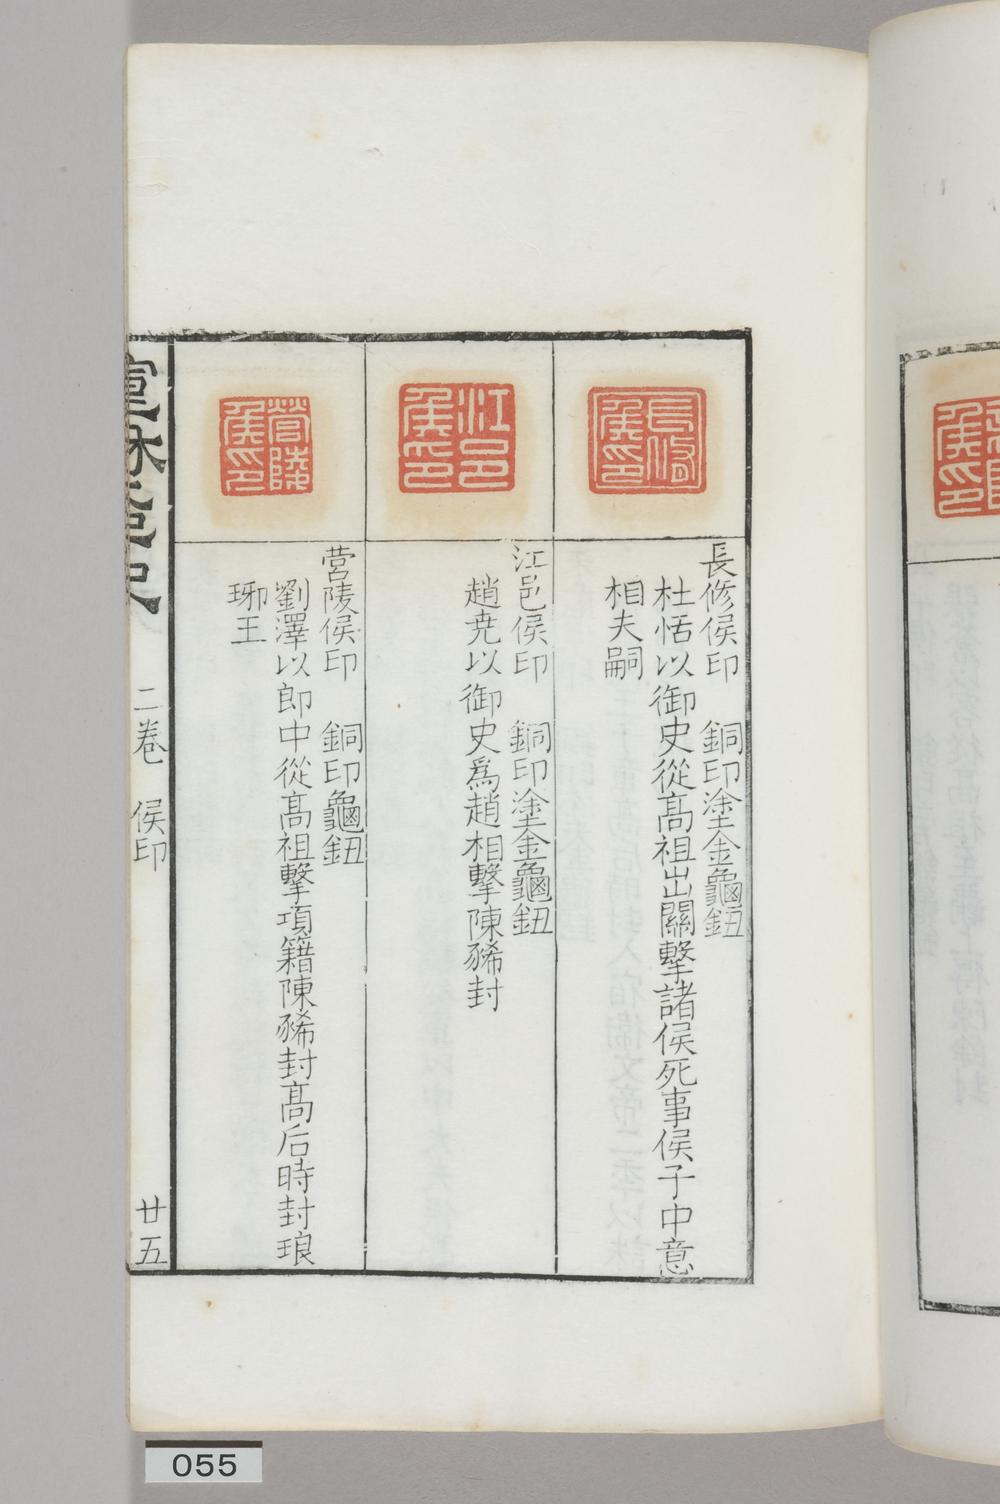 長修
侯印
長修侯印　銅印塗金龜鈕
杜恬以御史從高祖出關擊諸侯死事侯子中意
相夫嗣
江邑
侯印
江邑侯印　銅印塗金龜鈕
趙堯以御史為趙相擊陳豨封
營陵
侯印
營陵侯印　銅印龜鈕
劉澤以郎中從高祖擊項籍陳豨封高后時封琅
琊王
二卷　侯印　廿五
055